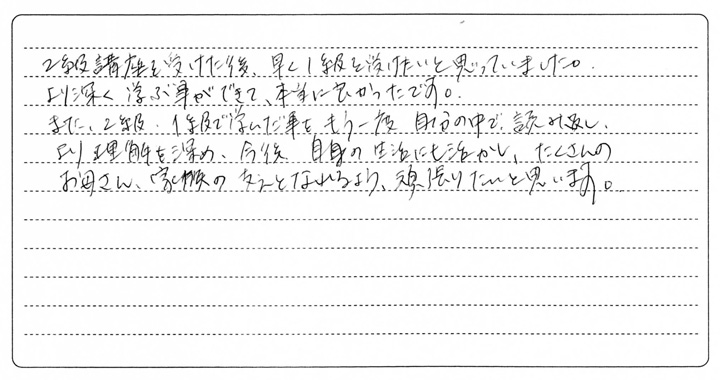 2級講座を受けた後、早く1級を受けたいと思っていました。
より深く学ぶ事ができて、本当に良かったです。
また、2級、1級で学んだ事をもう一度自分の中で、読み返し、
より理解を深め、今後自身の生活にも活かし、たくさんの
お母さん、家族の支えとなれるよう、頑張りたいと思います。